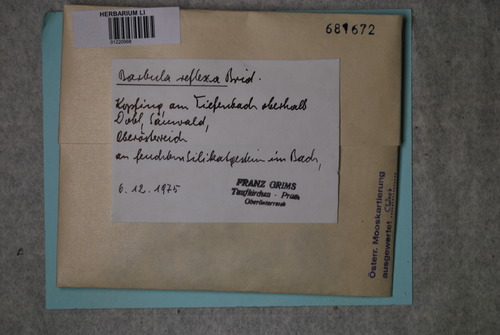 HERBARIUM LI
689672
Barbula reflexa Brid.
Kopfing am Tiefenbach oberhalb
Dobl, Sauwald,
Oberösterreich
an feuchtem Silikatgestein im Bach,
6.12.1975
FRANZ GRIMS
Taufkirchen - Pram
Oberösterreich
Österr. Mooskartierung
ausgewertet